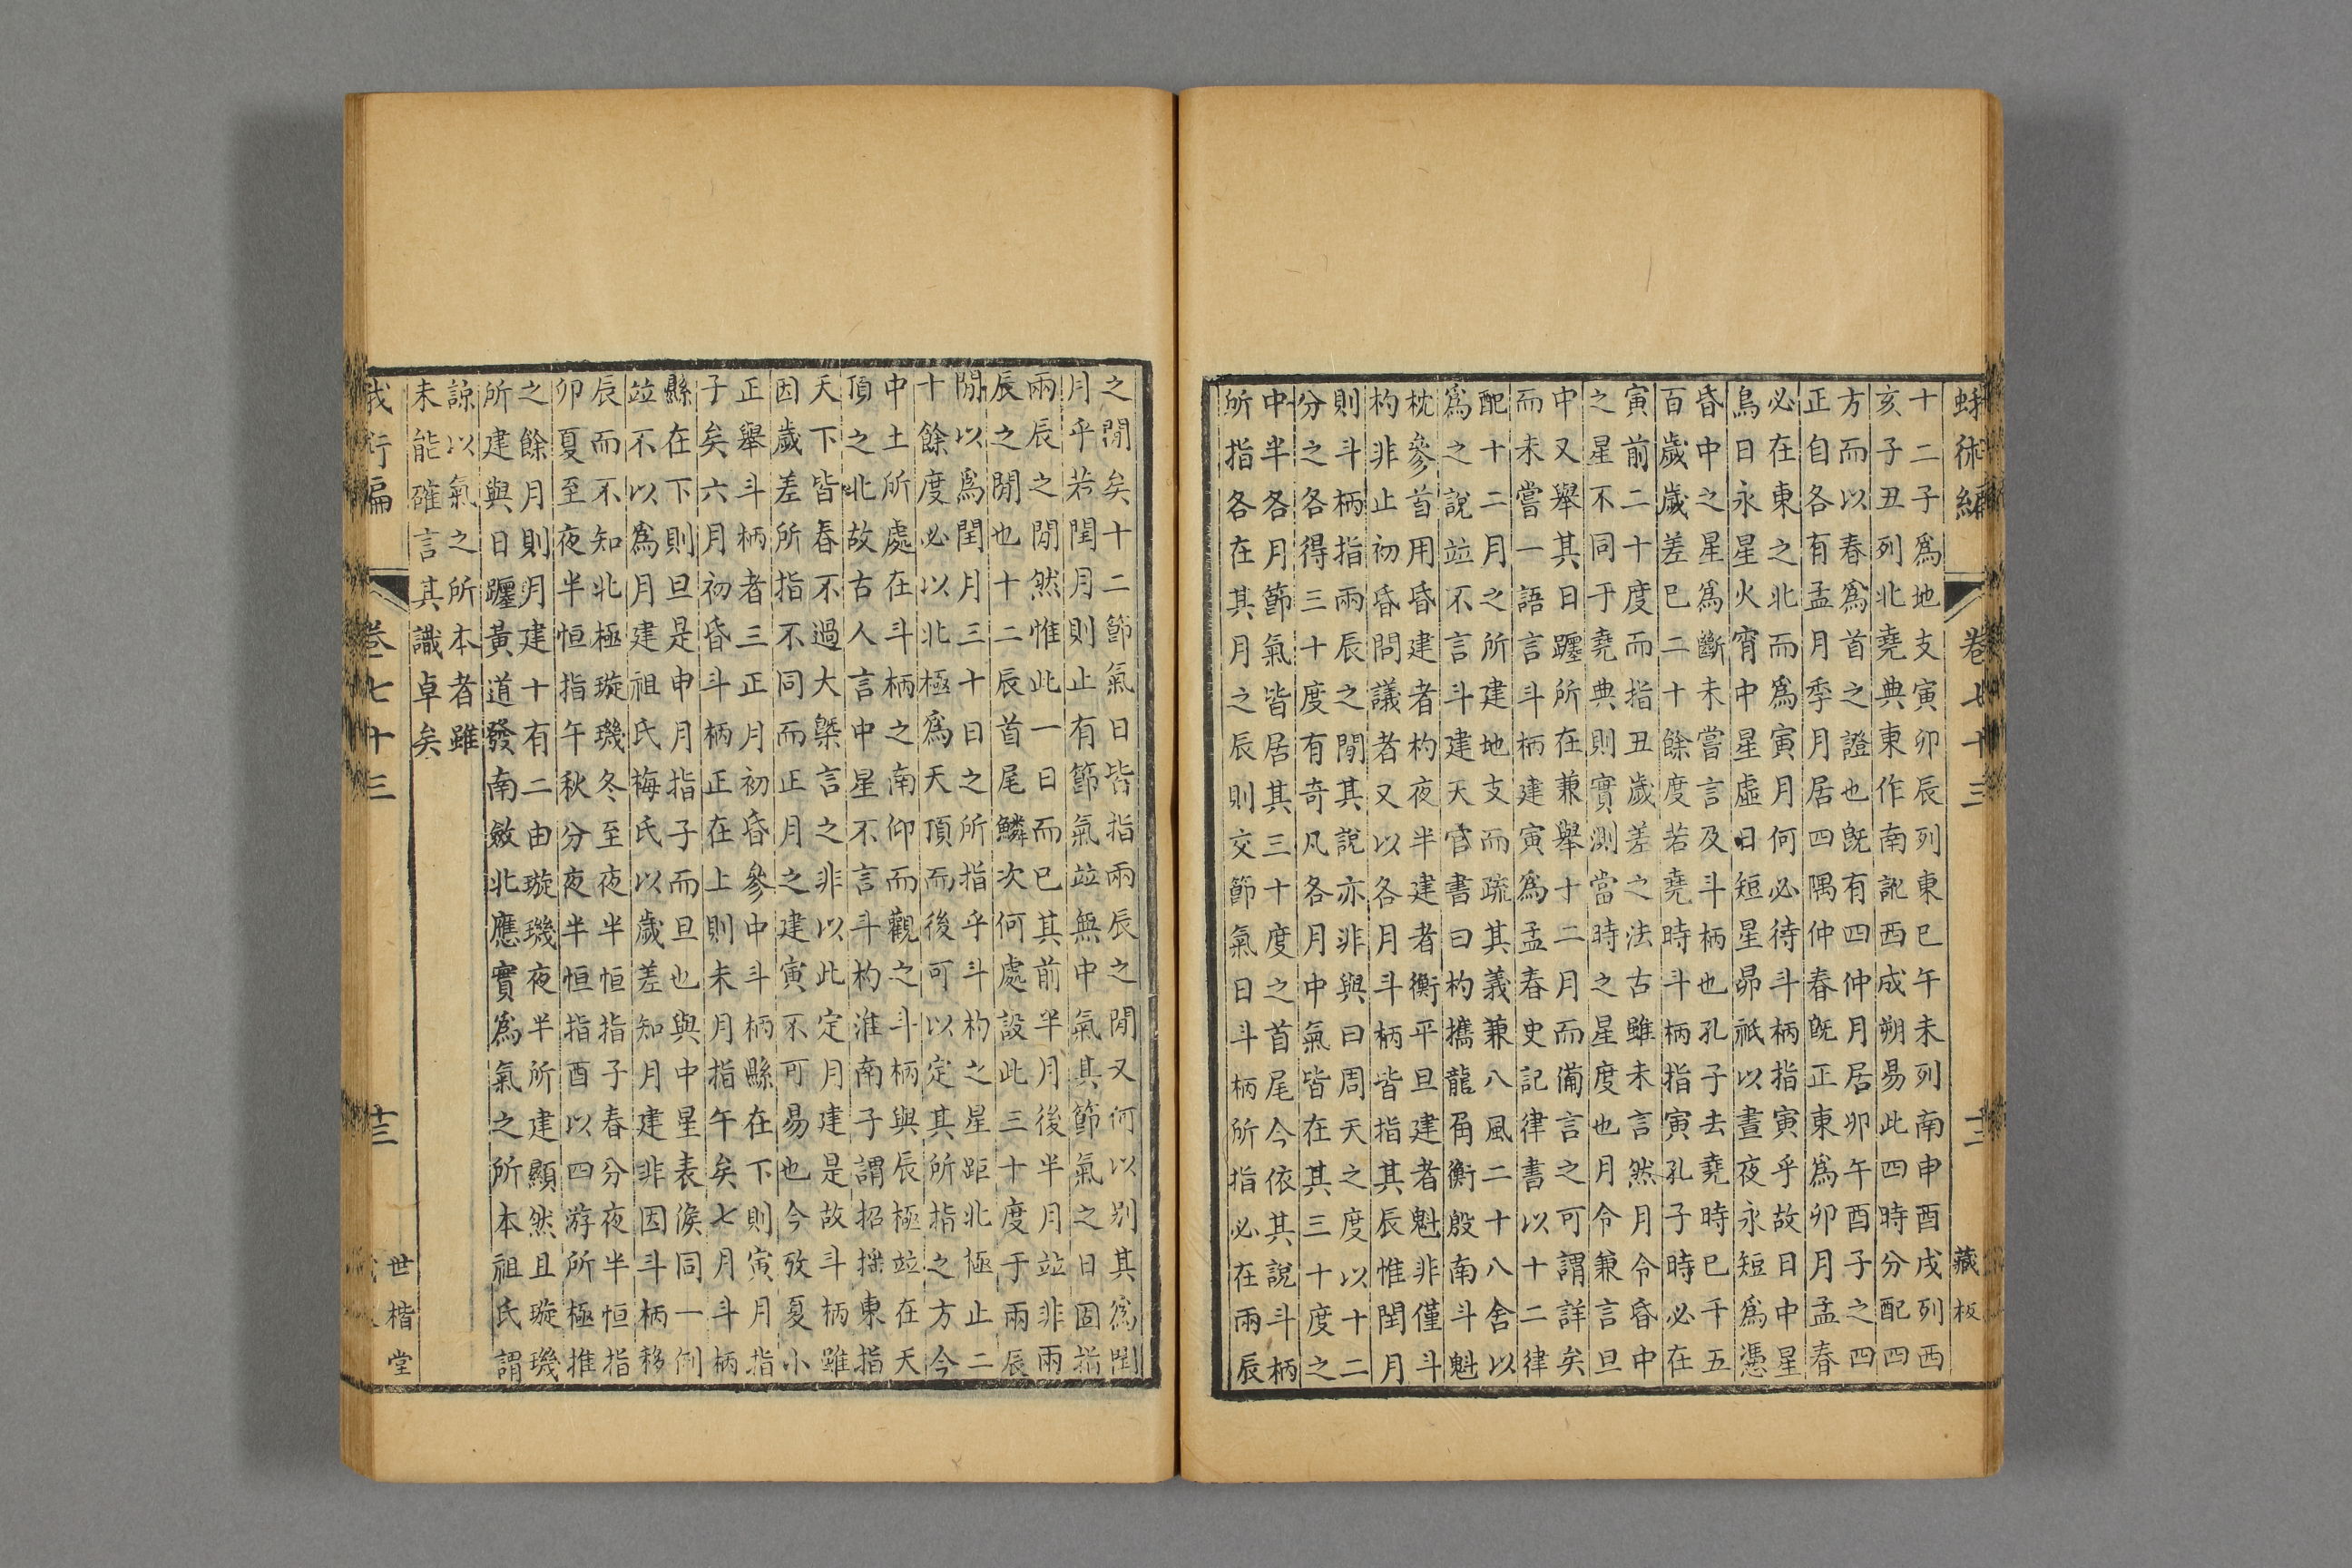 蛾術編 卷七十三 十二 藏板
十二子為地支寅卯辰列東巳午未列南申酉戌列西
亥子丑列北堯典東作南訛西成朔易此四時分配四
方而以春為首之證也既有四仲月居卯午酉子之四
正自各有孟月季月居四隅仲春既正東為卯月孟春
必在東之北而為寅月何必待斗柄指寅乎故日中星
鳥日永星火宵中星虛日短星昴祇以晝夜永短為憑
昏中之星為斷未嘗言及斗柄也孔子去堯時已千五
百歲歲差已二十餘度若堯時斗柄指寅孔子時必在
寅前二十度而指丑歲差之法古雖未言然月令昏中
之星不同于堯典則實測當時之星度也月令兼言旦
中又舉其日躔所在兼舉十二月而備言之可謂詳矣
而未嘗一語言斗柄建寅為孟春史記律書以十二律
配十二月之所建地支而疏其義兼八風二十八舍以
為之說竝不言斗建天官書曰杓攜龍角衡殷南斗魁
枕參首用昏建者杓夜半建者衡平旦建者魁非僅斗
杓非止初昏問議者又以各月斗柄皆指其辰惟閏月
則斗柄指兩辰之閒其說亦非與曰周天之度以十二
分之各得三十度有奇凡各月中氣皆在其三十度之
中半各月節氣皆居其三十度之首尾今依其說斗柄
所指各在其月之辰則交節氣日斗柄所指必在兩辰
之閒矣十二節氣日皆指兩辰之閒又何以別其為閏
月乎若閏月則止有節氣竝無中氣其節氣之日固指
兩辰之閒然惟此一日而已其前半月後半月竝非兩
辰之閒也十二辰首尾鱗次何處設此三十度于兩辰
閒以為閏月三十日之所指乎斗杓之星距北極止二
十餘度必以北極為天頂而後可以定其所指之方今
中土所處在斗柄之南仰而觀之斗柄與辰極竝在天
頂之北故古人言中星不言斗杓淮南子謂招搖東指
天下皆春不過大槩言之非以此定月建是故斗柄雖
因歲差所指不同而正月之建寅不可易也今攷夏小
正舉斗柄者三正月初昏參中斗柄縣在下則寅月指
子矣六月初昏斗柄正在上則未月指午矣七月斗柄
縣在下則旦是申月指子而旦也與中星表候同一例
竝不以為月建祖氏梅氏以歲差知月建非因斗柄移
辰而不知北極璇璣冬至夜半恒指子春分夜半恒指
卯夏至夜半恒指午秋分夜半恒指酉以四游所極推
之餘月則月建十有二由璇璣夜半所建顯然且璇璣
所建與日躔黃道發南斂北應實為氣之所本祖氏謂
諒以氣之所本者雖
未能確言其識卓矣
卷七十三 十三 世楷堂